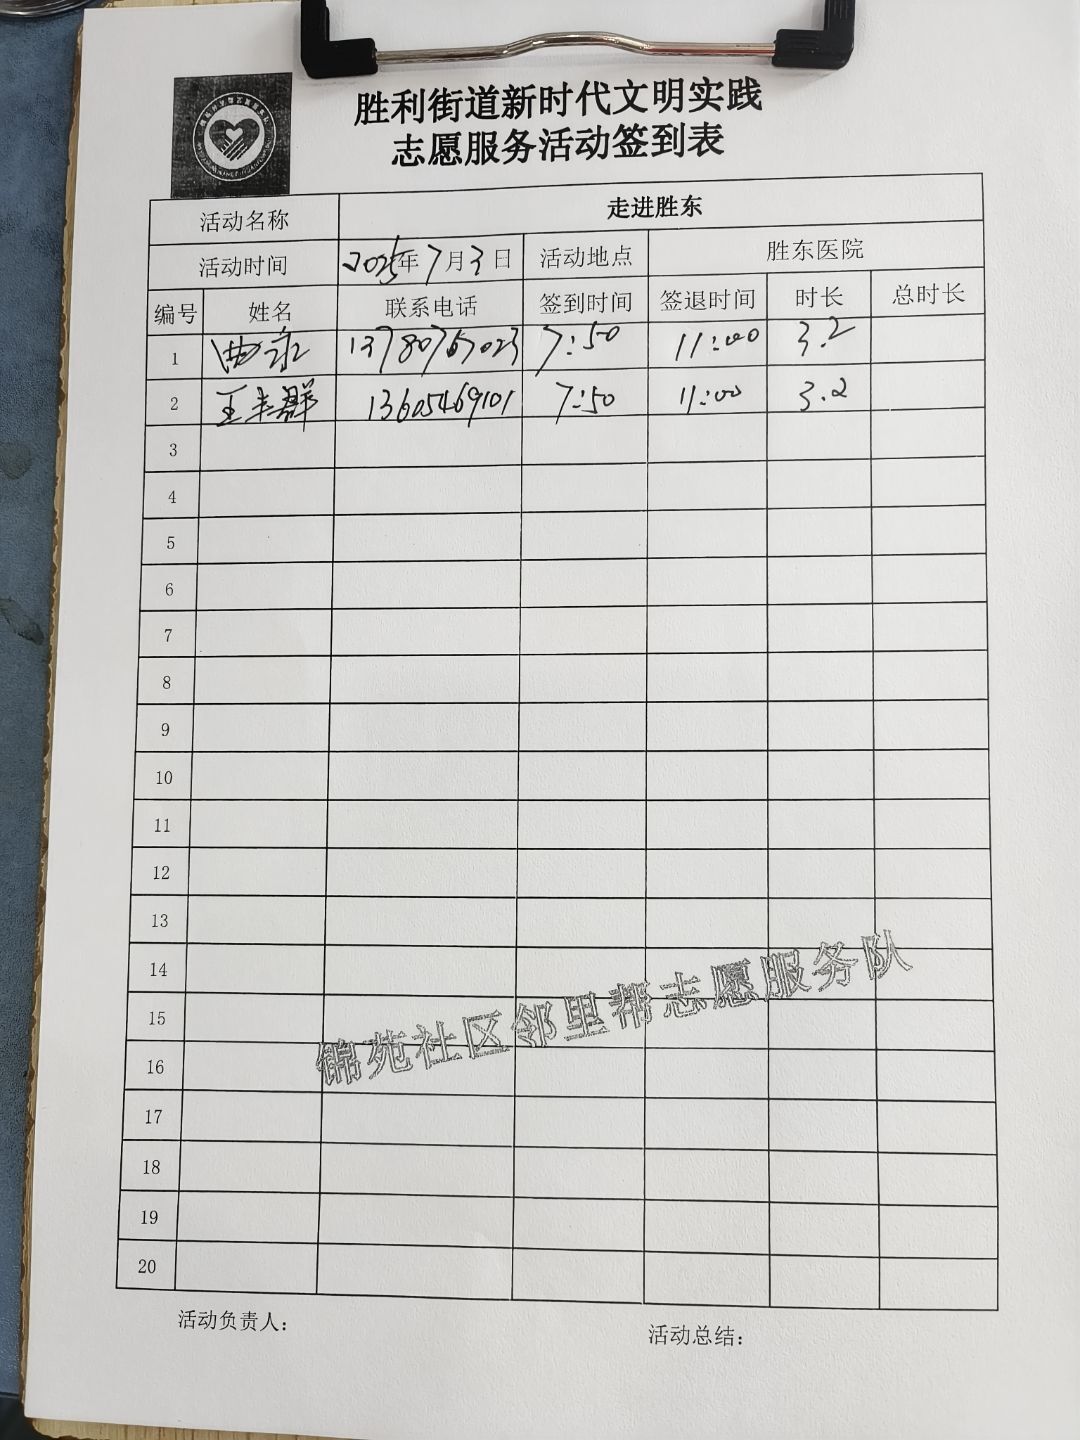 胜利街道新时代文明实践
志愿服务活动签到表
活动名称 走进胜东
活动时间 2025年7月3日 活动地点 胜东医院
编号 姓名 联系电话 签到时间 签退时间 时长 总时长
1 曲 13780767023 7:50 11:00 3.2
2 王丰群 13605469101 7:50 11:00 3.2
3
4
5
6
7
8
9
10
11
12
13
14
15
16
17
18
19
20
锦苑社区邻里帮志愿服务队
活动负责人： 活动总结：